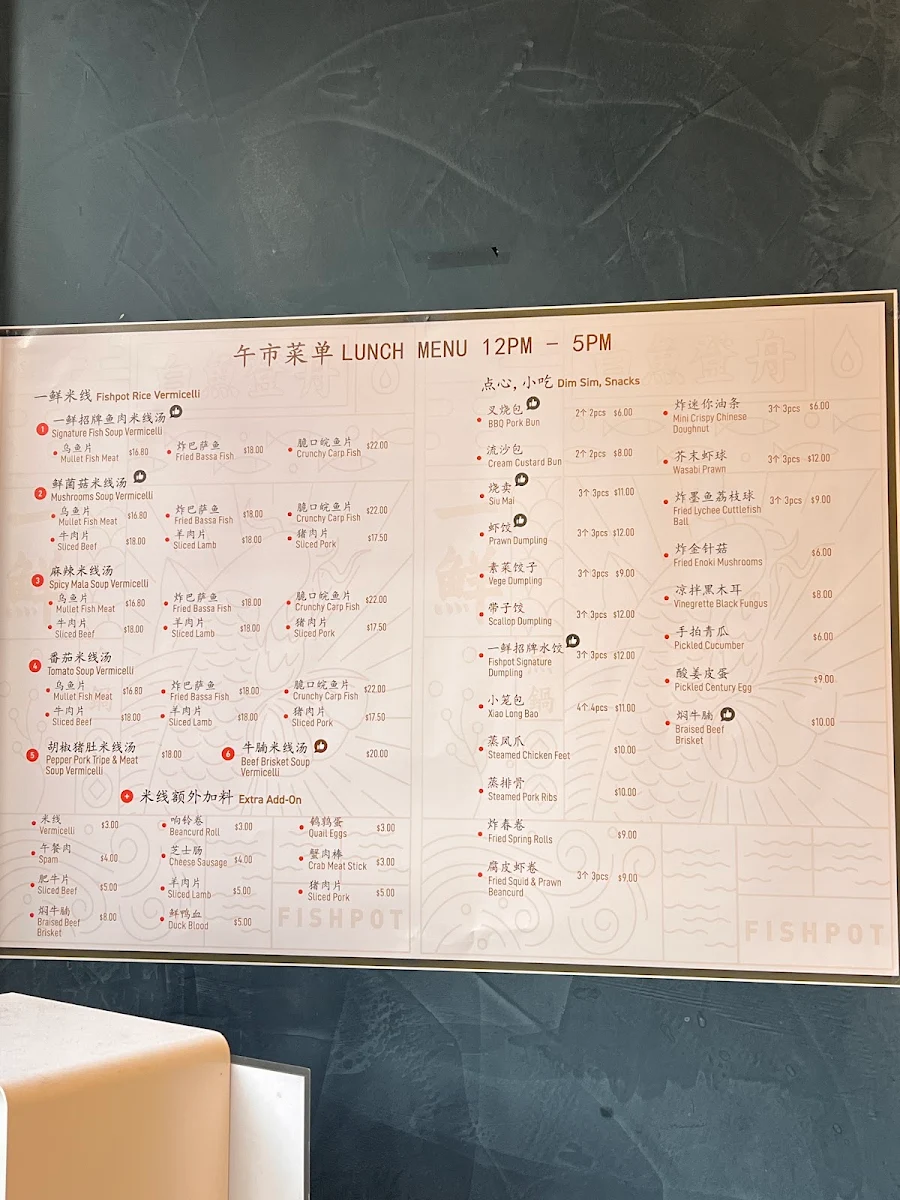 午市菜单 LUNCH MENU 12PM - 5PM
一鲜米线 Fishpot Rice Vermicelli
1 一鲜招牌鱼肉米线汤
Signature Fish Soup Vermicelli
乌鱼片 $16.80 炸巴萨鱼 $18.00 脆口皖鱼片 $22.00
Mullet Fish Meat Fried Bassa Fish Crunchy Carp Fish
2 鲜菌菇米线汤
Mushrooms Soup Vermicelli
乌鱼片 $16.80 炸巴萨鱼 $18.00 脆口皖鱼片 $22.00
Mullet Fish Meat Fried Bassa Fish Crunchy Carp Fish
牛肉片 $18.00 羊肉片 $18.00 猪肉片 $17.50
Sliced Beef Sliced Lamb Sliced Pork
3 麻辣米线汤
Spicy Mala Soup Vermicelli
乌鱼片 $16.80 炸巴萨鱼 $18.00 脆口皖鱼片 $22.00
Mullet Fish Meat Fried Bassa Fish Crunchy Carp Fish
牛肉片 $18.00 羊肉片 $18.00 猪肉片 $17.50
Sliced Beef Sliced Lamb Sliced Pork
4 番茄米线汤
Tomato Soup Vermicelli
乌鱼片 $16.80 炸巴萨鱼 $18.00 脆口皖鱼片 $22.00
Mullet Fish Meat Fried Bassa Fish Crunchy Carp Fish
牛肉片 $18.00 羊肉片 $18.00 猪肉片 $17.50
Sliced Beef Sliced Lamb Sliced Pork
5 胡椒猪肚米线汤 $18.00
Pepper Pork Tripe & Meat
Soup Vermicelli
6 牛腩米线汤 $20.00
Beef Brisket Soup
Vermicelli
+ 米线额外加料 Extra Add-On
米线 $3.00 响铃卷 $3.00 鹌鹑蛋 $3.00
Vermicelli Beancurd Roll Quail Eggs
午餐肉 $4.00 芝士肠 $4.00 蟹肉棒 $3.00
Spam Cheese Sausage Crab Meat Stick
肥牛片 $5.00 羊肉片 $5.00 猪肉片 $5.00
Sliced Beef Sliced Lamb Sliced Pork
焖牛腩 $8.00 鲜鸭血 $5.00
Braised Beef Duck Blood
Brisket
FISHPOT
点心, 小吃 Dim Sim, Snacks
叉烧包 2个 2pcs $6.00
BBQ Pork Bun
流沙包 2个 2pcs $8.00
Cream Custard Bun
烧卖 3个 3pcs $11.00
Siu Mai
虾饺 3个 3pcs $12.00
Prawn Dumpling
素菜饺子 3个 3pcs $9.00
Vege Dumpling
带子饺 3个 3pcs $12.00
Scallop Dumpling
一鲜招牌水饺 3个 3pcs $12.00
Fishpot Signature
Dumpling
小笼包 4个 4pcs $11.00
Xiao Long Bao
蒸凤爪 $10.00
Steamed Chicken Feet
蒸排骨 $10.00
Steamed Pork Ribs
炸春卷 $9.00
Fried Spring Rolls
腐皮虾卷 3个 3pcs $9.00
Fried Squid & Prawn
Beancurd
炸迷你油条 3个 3pcs $6.00
Mini Crispy Chinese
Doughnut
芥末虾球 3个 3pcs $12.00
Wasabi Prawn
炸墨鱼荔枝球 3个 3pcs $9.00
Fried Lychee Cuttlefish
Ball
炸金针菇 $6.00
Fried Enoki Mushrooms
凉拌黑木耳 $8.00
Vinegrette Black Fungus
手拍青瓜 $6.00
Pickled Cucumber
酸姜皮蛋 $9.00
Pickled Century Egg
焖牛腩 $10.00
Braised Beef
Brisket
FISHPOT